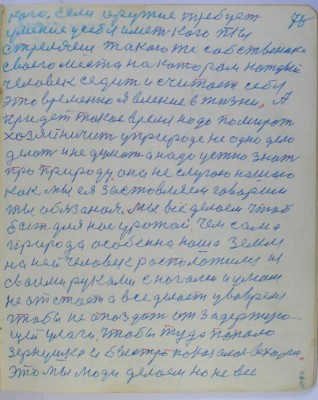 75
кого, если оружие требует
умение у себя имет кого ты
стреляеш такого же собственика
своего места на котором каждый
человек седит и считает себя
это временное явление в жизни, А
придет такое время надо помирать
хозяйничить у природе не одно дело
делать и не думать а надо устно знать
про природу она не слугою нашого
как мы ея застовляем говорим
ты обязаная. Мы всё делаем чтоб
был для нас урожай, чем сама
природа особенна наша земля
на ней человек расположился из
своими руками с ногами и умом
не отстает а все делает у во время
чтобы не опоздать от задержую
щей влаги, чтобы туда попало
зернушко и быстро показалось всходом,
Это мы люди делаем но не все